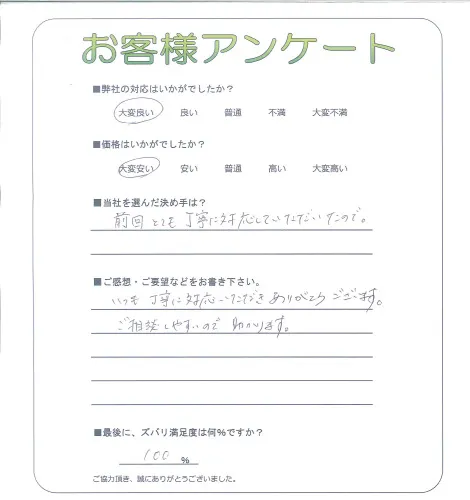 お客様アンケート
■弊社の対応はいかがでしたか？
大変良い 良い 普通 不満 大変不満
■価格はいかがでしたか？
大変安い 安い 普通 高い 大変高い
■当社を選んだ決め手は？
前回とても丁寧に対応していただいたので。
■ご感想・ご要望などをお書き下さい。
いつも丁寧に対応いただきありがとうございます。
ご相談しやすいので助かります。
■最後に、ズバリ満足度は何%ですか？
100 %
ご協力頂き、誠にありがとうございました。